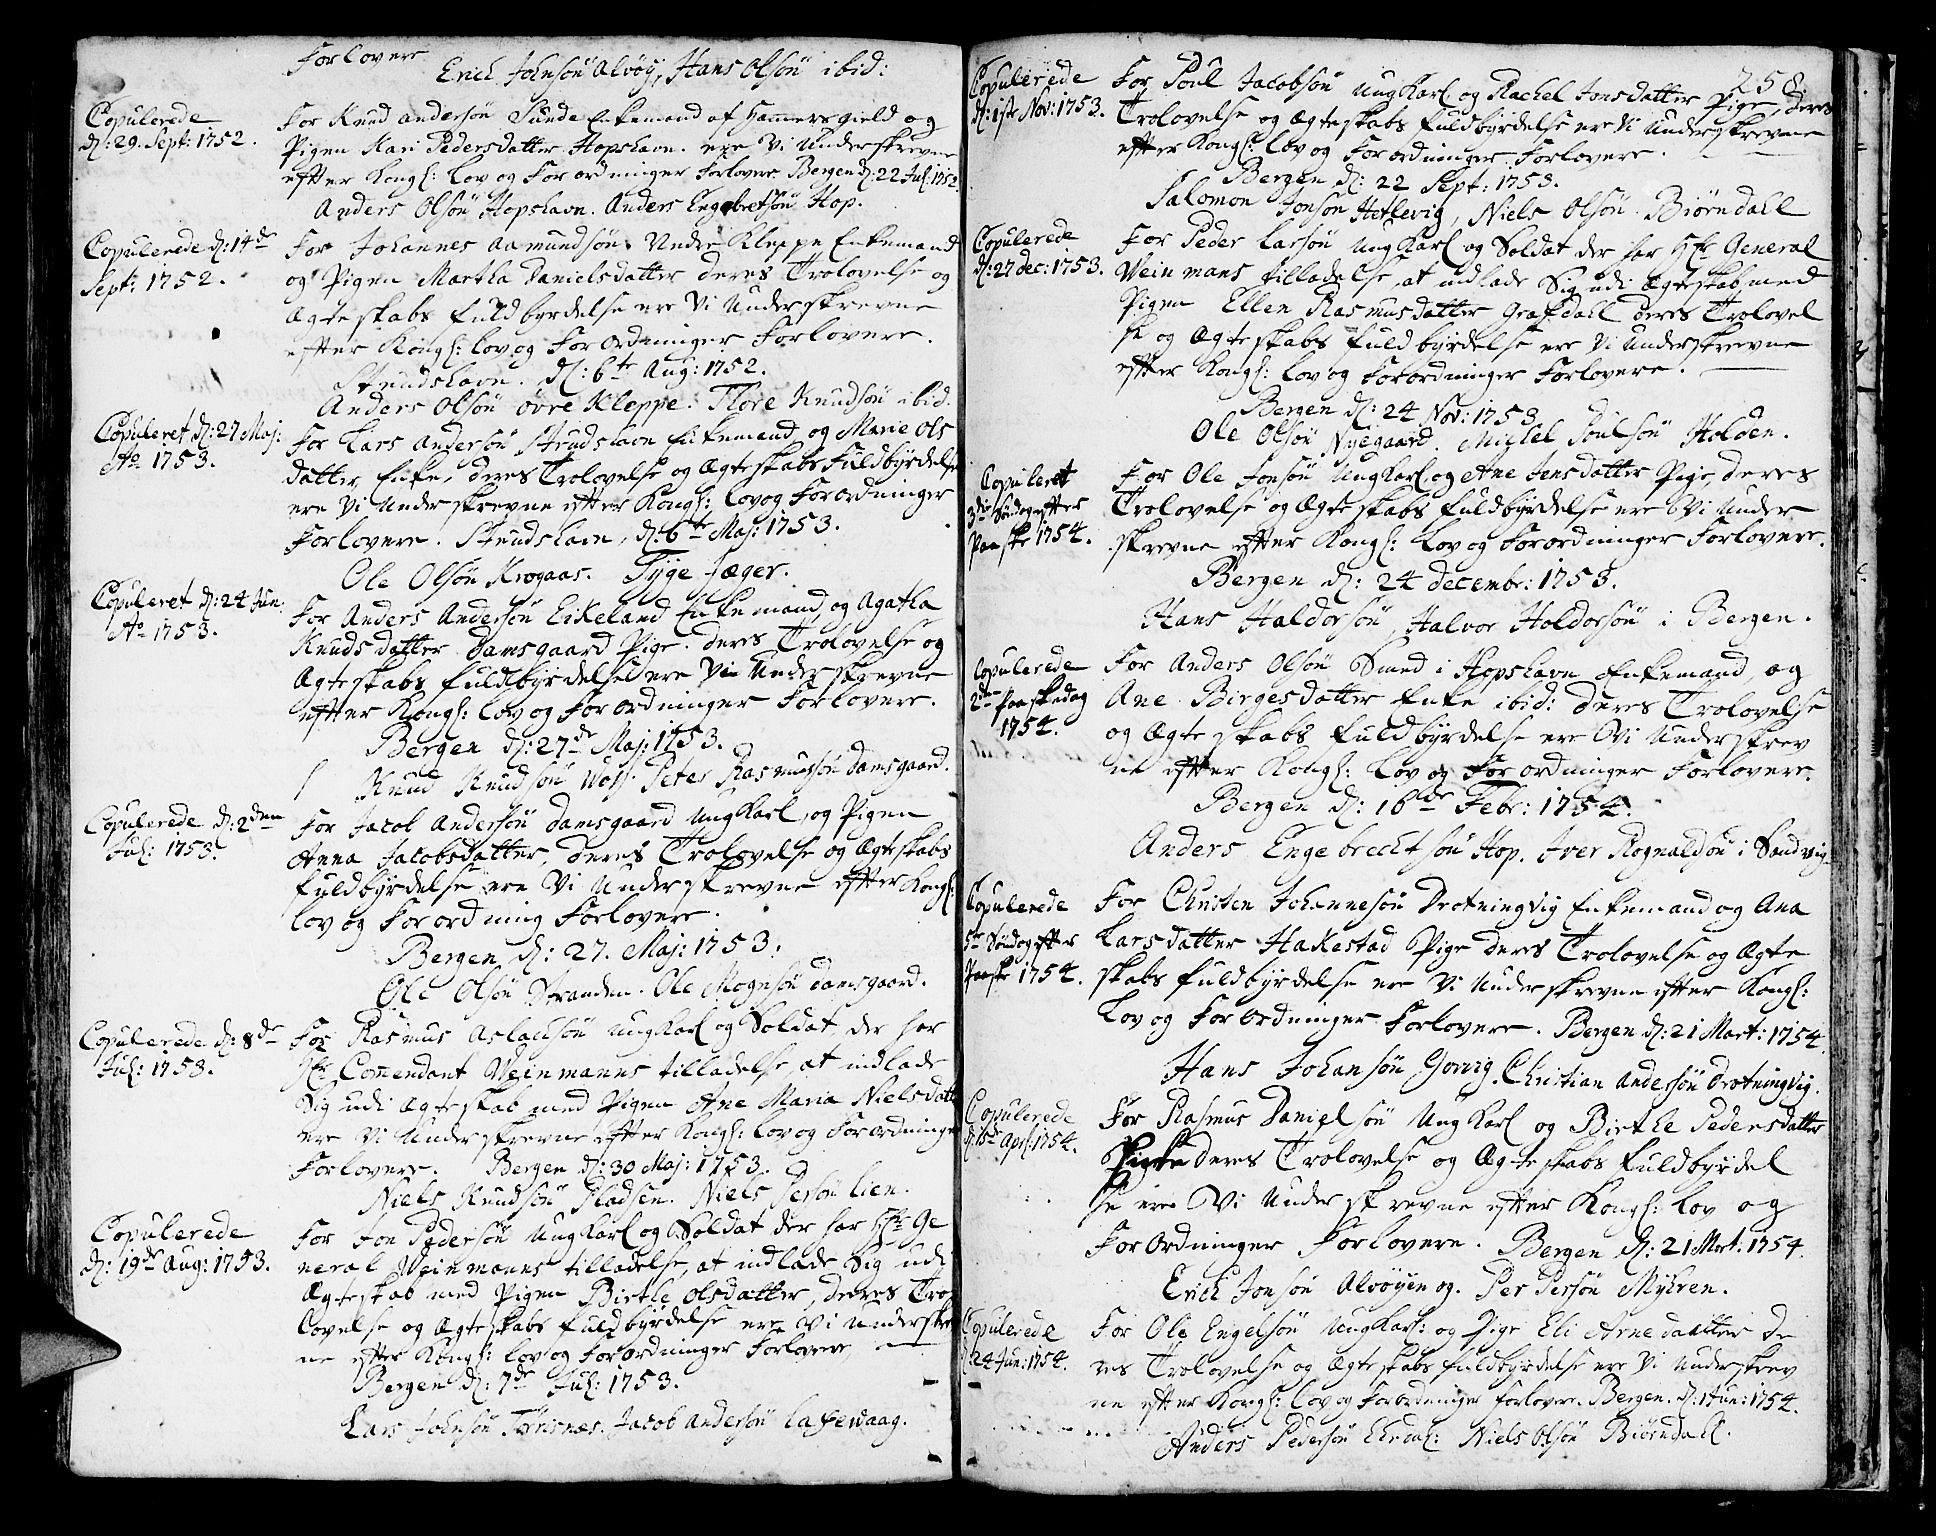 Forlovere
Erich Johnsøn Alvøÿ, Hans Olsøn ibid:
Copulerede
d: 29. Sept: 1752.
For Knud Andersøn Sunde Enkemand af Hammers gield og
Pigen Kari Pedersdatter Hopshavn. ere Vi Underskrevne
efter Kongl: Lov og Forordninger Forlovere Bergen d: 22 Jul: 1752.
Anders Olsøn Hopshavn. Anders Engebretsøn Hop.
Copulerede d: 14de
Sept: 1752.
For Johannes Aamundsøn Nedre Kleppe Enkemand
og Pigen Martha Danielsdatter deres Trolovelse og
Ægteskabs fuldbyrdelse ere Vi Underskrevne
efter Kongl: Lov og Forordninger Forlovere.
Strudshavn. d: 6te Aug: 1752.
Anders Olsøn øvre Kleppe. Tore Knudsøn ibid.
Copuleret d: 27 Maj:
Ao 1753.
For Lars Andersøn Strudshavn Enkemand og Marie Ols
datter Enke, deres Trolovelse og Ægteskabs Fuldbyrdelse
ere Vi Underskrevne efter Kongl: Lov og Forordninger
Forlovere. Strudshavn, d: 6te Maj: 1753.
Ole Olsøn Krogaas. Tyge Jæger.
Copuleret d: 24 Jun:
Ao 1753.
For Anders Andersøn Eikeland Enkemand og Agatha
Knudsdatter Damsgaard Pige. deres Trolovelse og
Ægteskabs fuldbyrdelse ere Vi Underskrevne
efter Kongl: Lov og Forordninger Forlovere.
Bergen d: 27de Maj: 1753.
Knud Knudsøn Peter Rasmussøn Damsgaard.
Copulerede d: 2den
Jul: 1753.
For Jacob Andersøn Damsgaard Ung Karl, og Pigen
Anna Jacobsdatter, deres Trolovelse og Ægteskabs
fuldbyrdelse ere Vi Underskrevne efter Kongl:
Lov og Forordning Forlovere.
Bergen d: 27. Maj: 1753.
Ole Olsøn Stranden. Ole Mognsøn Damsgaard.
Copulerede d: 8de
Jul: 1753.
For Rasmus Aslachsøn Ung Karl og Soldat der har
Hr Commendant Weinmanns tilladelse, at indlade
Sig udi Ægteskab med Pigen Ane Maria Nielsdatt
ere Vi Underskrevne efter Kongl: Lov og Forordninger
Forlovere. Bergen d: 30 Maj: 1753.
Niels Knudsøn Pladsen. Niels Persøn Lien.
Copulerede
d: 19de Aug: 1753.
For Jon Pedersøn Ung Karl og Soldat der har Hr Ge
neral Weinmanns tilladelse, at indlade Sig udi
Ægteskab med Pigen Birthe Olsdatter, deres Tro
lovelse og Ægteskabs fuldbyrdelse ere Vi Underskrev
ne efter Kongl: Lov og Forordninger Forlovere,
Bergen d: 7de Jul: 1753.
Lars Johnsøn Tørisnæs. Jacob Andersøn Laxewaag.
258.
Copulerede
d: 1ste Nov: 1753.
For Poul Jacobsøn Ung Karl og Rachel Jonsdatter Pige, deres
Trolovelse og Ægteskabs fuldbyrdelse ere Vi Underskrevne
efter Kongl: Lov og Forordninger Forlovere.
Bergen d: 22 Sept: 1753.
Salomon Jonsøn Hetlevig, Niels Olsøn Biørndahl
Copulerede
d: 27 dec: 1753.
For Peder Larsøn Ung Karl og Soldat der har Hr General
Weinmans tilladelse, at indlade Sig udi Ægteskab med
Pigen Ellen Rasmusdatter Grafdahl deres Trolovel
se og Ægteskabs fuldbyrdelse ere Vi Underskrevne
efter Kongl: Lov og Forordninger Forlovere.
Bergen d: 24 Nov: 1753
Ole Olsøn Nyegaard. Michel Poulsøn Holden.
Copuleret
3die Søndag efter
Paaske 1754.
For Ole Jonsøn Ung Karl og Ane Jensdatter Pige, deres
Trolovelse og Ægteskabs fuldbyrdelse ere Vi Under
skrevne efter Kongl: Lov og Forordninger Forlovere.
Bergen d: 24 Decembr: 1753.
Hans Haldorsøn, Halvor Holdorsøn i Bergen.
Copulerede
2den Paaskedag
1754.
For Anders Olsøn Smed i Hopshavn Enkemand, og
Ane Birgesdatter Enke ibid: deres Trolovelse
og Ægteskabs fuldbyrdelse ere Vi Underskrev
ne efter Kongl: Lov og Forordninger Forlovere.
Bergen d: 16de Febr: 1754.
Anders Engebrechtsøn Hop. Iver Rognaldsøn i Sandvig
Copulerede
5te Søndag efter
Paaske 1754.
For Christen Johannesøn Drotningvig Enkemand og Ana
Larsdatter Hakestad Pige deres Trolovelse og Ægte
skabs fuldbyrdelse ere Vi Underskrevne efter Kongl:
Lov og Forordninger Forlovere. Bergen d: 21 Mart: 1754.
Hans Johansøn Christian Andersøn Drotningvig.
Copulerede
d: 15de Apr: 1754.
For Rasmus Danielsøn Ung Karl og Birthe Pedersdatter
Pige deres Trolovelse og Ægteskabs fuldbyrdel
se ere Vi Underskrevne efter Kongl: Lov og
Forordninger Forlovere. Bergen d: 21 Mart: 1754.
Erich Jonsøn Alvøyen og. Per Persøn Myhren.
Copulerede
d: 24 Jun: 1754.
For Ole Engelsøn Ung Karl: og Pige Eli Arnedaatter De
res Trolovelse og Ægteskabs fuldbyrdelse ere Vi Underskrev
ne efter Kongl: Lov og Forordninger Forlovere. Bergen. d: 1 Jun: 1754.
Anders Pedersøn Niels Olsøn Biørndall.